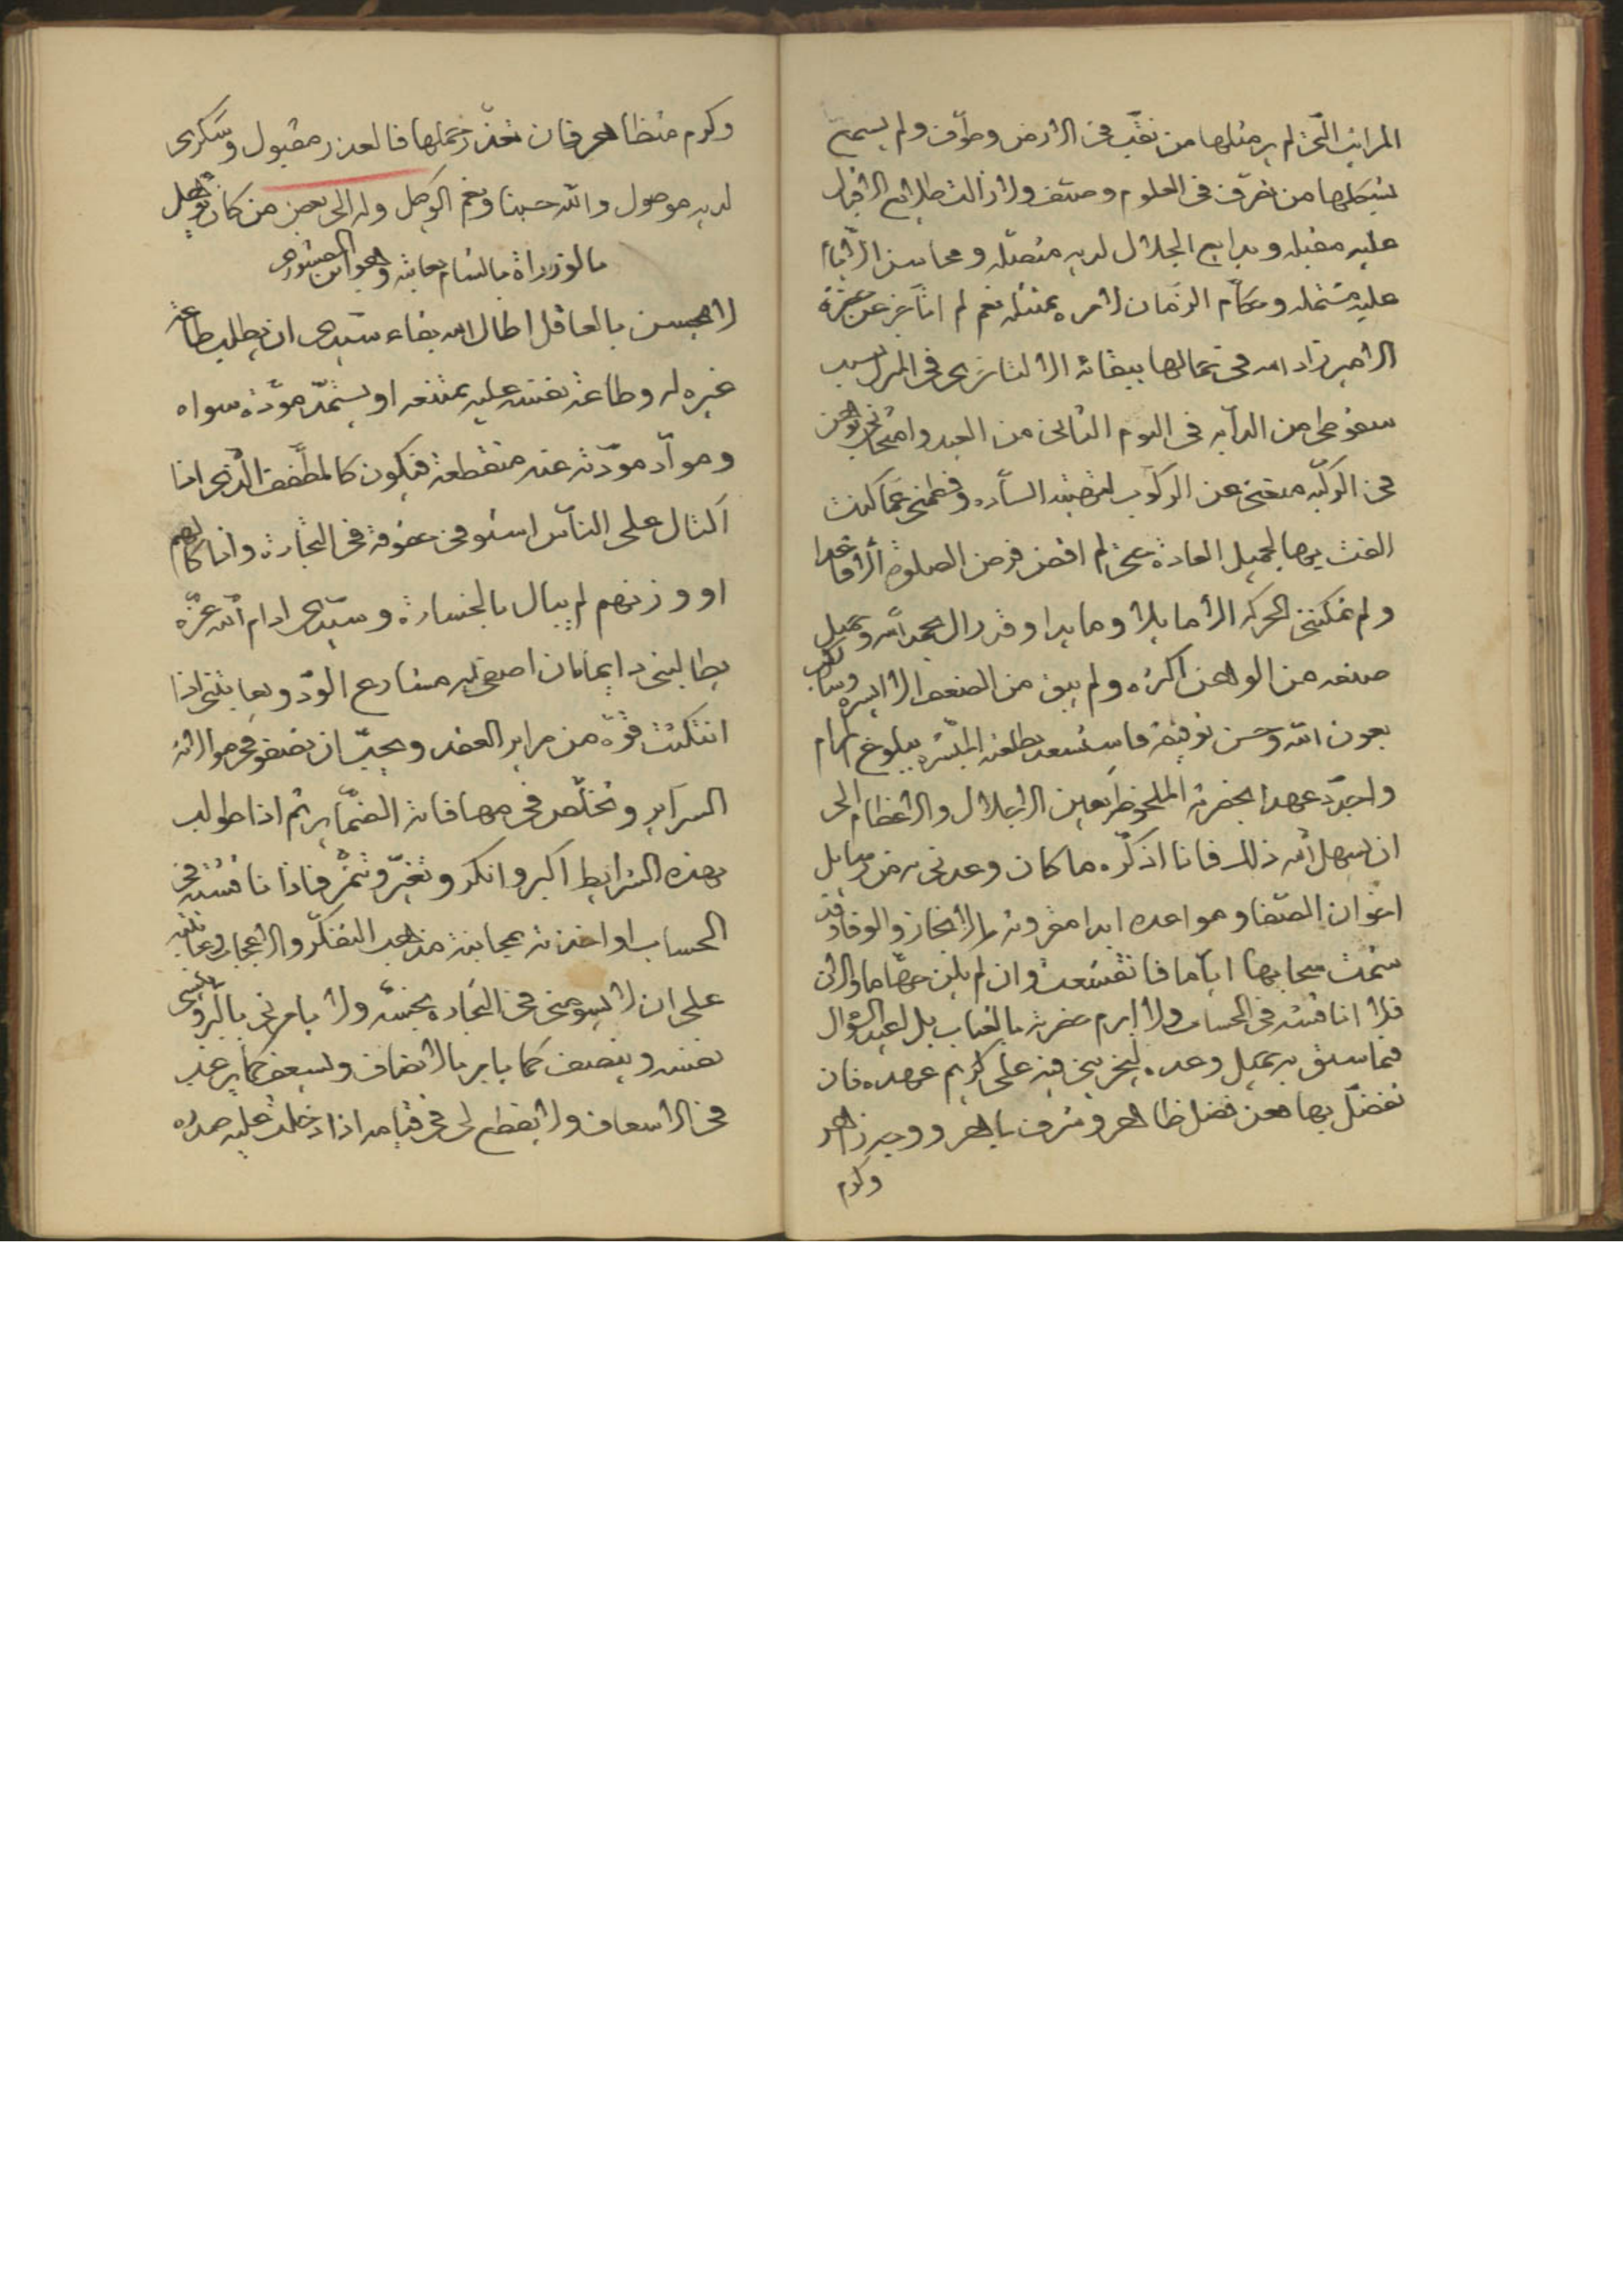 المراتب التى لم ير مثلها من نقب فى الارض وطوف ولم يسمع
بشكلها من تصرف فى العلوم وصنف ولا زالت طلايع الاقبال
عليه مقبله وبدايع الجلال لديه متصله ومحاسن الايام
عليه مشتمله وحكام الزمان لامره ممتثله نعم لم اتاخر عن حضرة
الامير زاد الله فى جمالها ببقائه الا لتاخرى فى المنزل بسبب
سقوطى من الدابه فى اليوم الثانى من العيد وامتحانى بوهن
فى الركبه منعنى عن الركوب لحضرته الساره وفطمنى عما كنت
الفت بها لجميل العادة حتى لم اقض فرض الصلوة الا قاعدا
ولم تمكننى الحركه الا ما بدا وما بدا وقد زال بحمد الله وجميل
صنعه من الوهن اكثره ولم يبق من الضعف الا ايسره وساركب
بعون الله وحسن توفيقه فاستسعد بطلعته المبشره ببلوغ المرام
واجدد عهدا بحضرته الملحوظه بعين الاجلال والاعظام الى
ان يسهل الله ذلك فانا اذكره ما كان وعدنى به من رسايل
اخوان الصفا ومواعده ابدا مقرونه بالانجاز والوفا وقد
شمت سحابها اياما فانقشعت وان لم يكن جهاما والان
فلا اناقشه فى الحساب ولا ابرم حضرته بالعتاب بل اعيد السؤال
فيما سبق به جميل وعده ليجرينى فيه على كريم عهده فان
تفضل بها فعن فضل ظاهر وشرف باهر ووجه زاهر
وكرم
وكرم متظاهر فان تعذر حملها فالعذر مقبول وشكرى
لديه موصول والله حسبنا ونعم الوكيل وله الى بعض من كان توهل
بالوزراة بالشام يعاتبه وهو ابن
لا يحسن بالعاقل اطال الله بقاء سيدى ان يطلب طاعة
غيره له وطاعة نفسه عليه ممتنعه او يستمد مودة سواه
ومواد مودته عنه منقطعة فيكون كالمطفف الذى اذا
اكتال على الناس استوفى حقوقه فى التجارة واذا كالهم
او وزنهم لم يبال بالخسارة وسيدى ادام الله عزه
يطالبنى دايما بان اصفى له مشارع الود ويعاتبنى اذا
انتكثت قوة من مراير العقد ويحب ان تصفو فى موالاته
السراير وتخلص فى مصافاته الضماير ثم اذا طولب
بهذه الشرايط اكبر وانكر وتغير وتنمر فاذا ناقشته فى
الحساب او اخذته بمجانبة مذاهب التفكر والاعجاب وعاتبته
على ان لا يسومنى فى التجاره بخسه ولا يامرنى بالبر وينسى
نفسه وينصف كما يامر بالانصاف ويسعف كما يرغب
فى الاسعاف ولا يقطع لى فى قيامه اذا دخلت عليه صدره